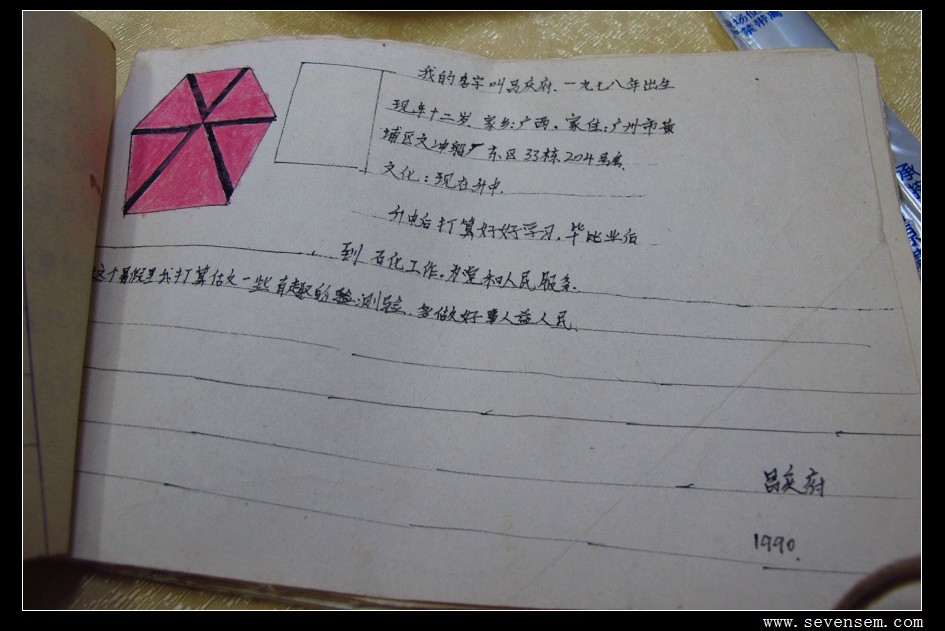 我的名字叫吕庆府.一九七八年出生
现年十二岁.家乡:广西.家住:广州市黄
埔区文冲船厂东区33栋204号房.
文化:现在升中.
升中后打算好好学习,毕业后
到石化工作.为党和人民服务.
这个暑假里我打算做一些有趣的验测验.多做好事人益人民.
吕庆府
1990.
www.sevensem.com